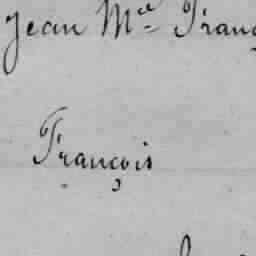 Jean Mce Franç
François